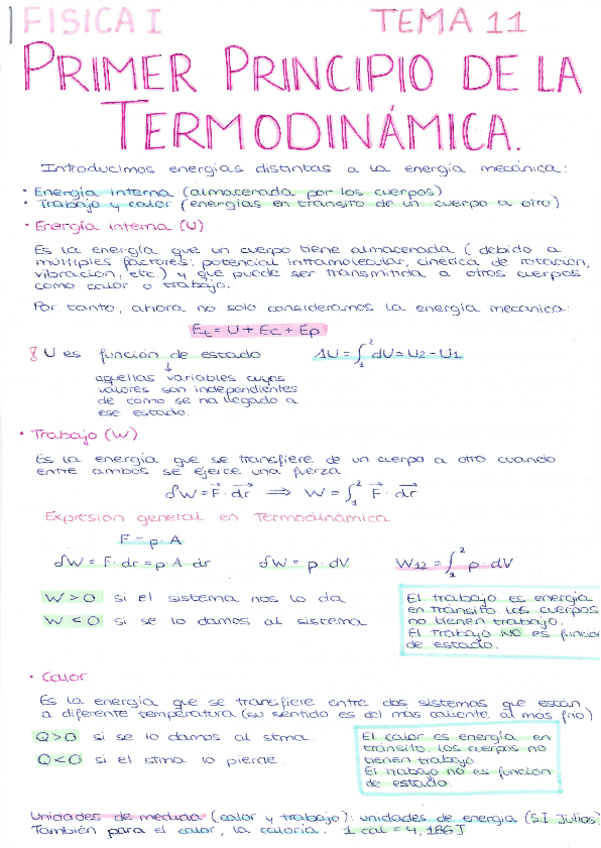 FISICA I TEMA 11
PRIMER PRINCIPIO DE LA
TERMODINÁMICA.
Introducimos energías distintas a la energía mecánica:
· Energía interna (almacenada por los cuerpos)
· Trabajo y calor (energías en tránsito de un cuerpo a otro)
· Energía interna (U)
Es la energía que un cuerpo tiene almacenada (debido a
múltiples factores: potencial intramolecular, cinética de rotación,
vibración, etc.) y que puede ser transmitida a otros cuerpos
como calor o trabajo.
Por tanto, ahora no solo consideramos la energía mecánica:
Et = U + Ec + Ep
U es función de estado ΔU = ∫₁² dU = U2 - U1
↓
aquellas variables cuyos
valores son independientes
de cómo se ha llegado a
ese estado.
· Trabajo (W)
Es la energía que se transfiere de un cuerpo a otro cuando
entre ambos se ejerce una fuerza.
δW = F⃗ · dr⃗ ⟹ W = ∫₁² F⃗ · dr⃗
Expresion general en Termodinámica
F = p · A
δW = F · dr = p · A · dr δW = p · dV W12 = ∫₁² p · dV
W > 0 si el sistema nos lo da
W < 0 si se lo damos al sistema
El trabajo es energía
en tránsito los cuerpos
no tienen trabajo.
El trabajo NO es función
de estado.
· Calor
Es la energía que se transfiere entre dos sistemas que están
a diferente temperatura (su sentido es del más caliente al más frío)
Q>0 si se lo damos al stma.
Q<0 si el stma lo pierde.
El calor es energía en
tránsito. los cuerpos no
tienen trabajo.
El trabajo no es función
de estado.
Unidades de medida (calor y trabajo): unidades de energía (S.I Julios)
También para el calor, la caloría. 1 cal = 4,186 J